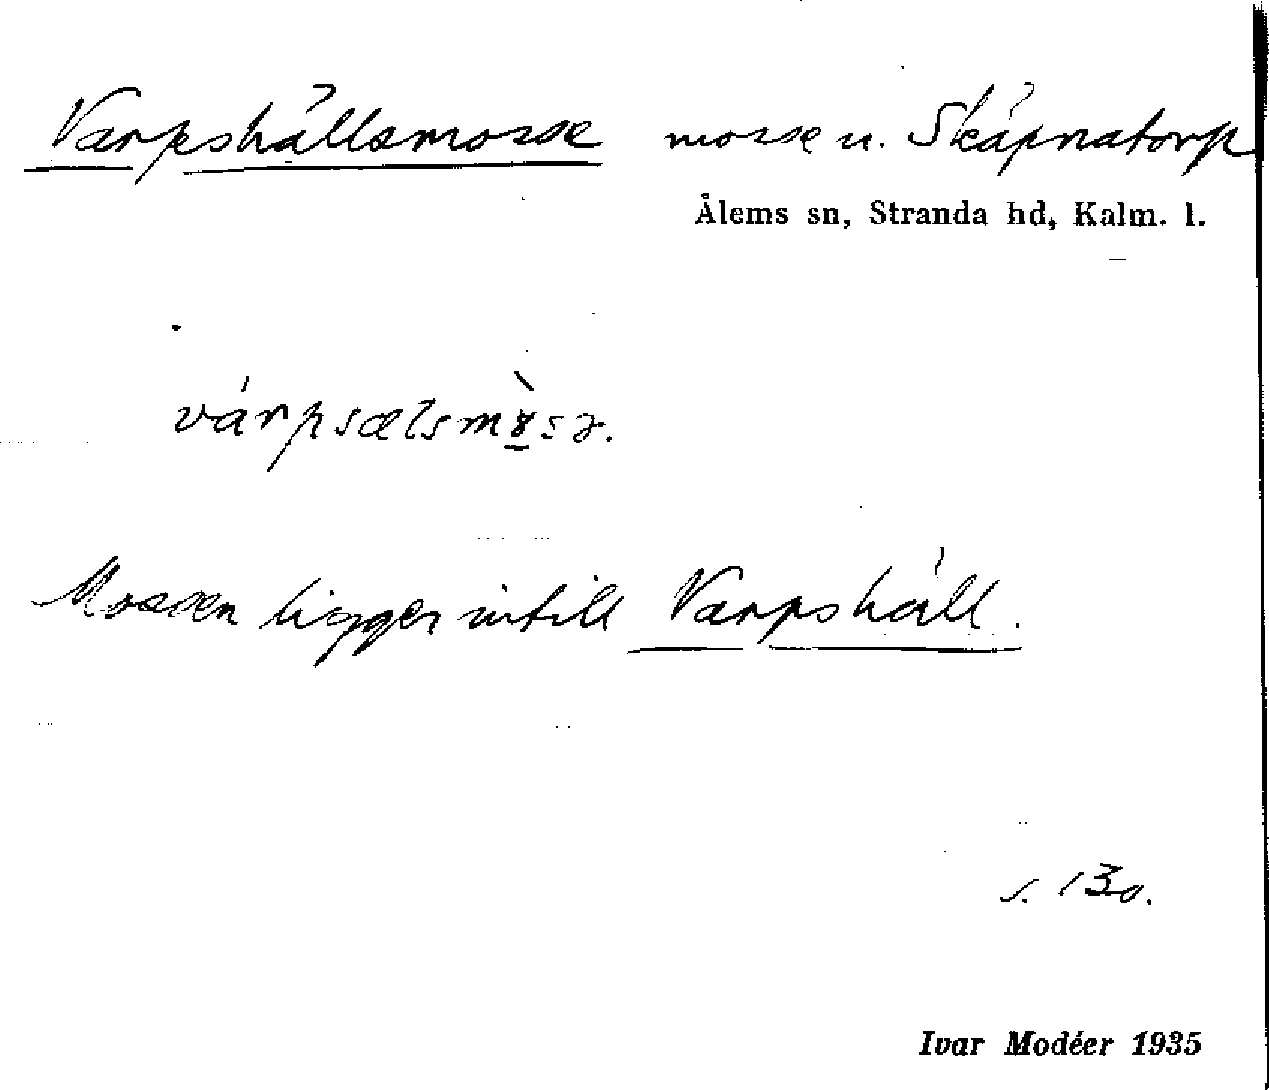 Varpshållsmosse mosse u. Skåpnatorp
Ålems sn, Stranda hd, Kalm. l.
várpsælsmɤ̀sə.
Mossen ligger intill Varpshåll.
s. 130.
Ivar Modéer 1935